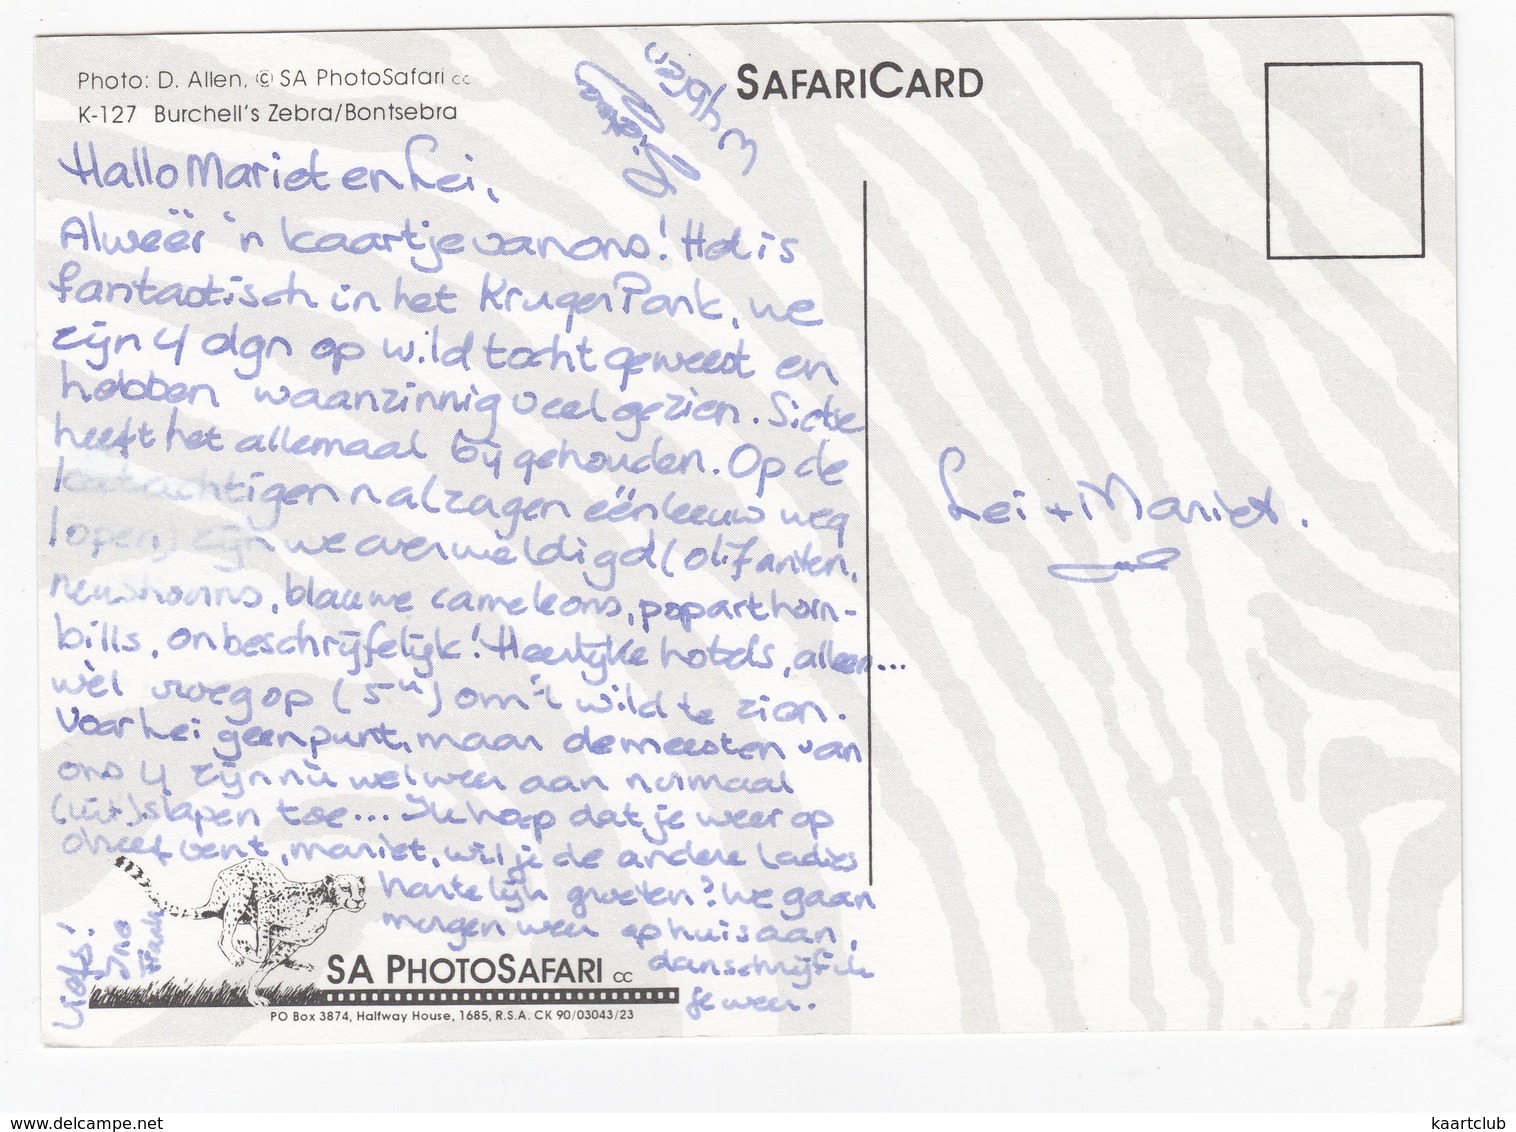 Photo: D. Allen, © SA PhotoSafari cc
K-127 Burchell's Zebra/Bontsebra
SAFARICARD
Hallo Mariet en Lei,
Alweër 'n kaartje van ons! Het is
fantastisch in het Kruger Park, we
zijn 4 dgn op wildtocht geweest en
hebben waanzinnig veel gezien. Sietse
heeft het allemaal bijgehouden. Op de
katachtigen na (zagen één leeuw weg
lopen) zijn we overweldigd (olifanten,
neushoorns, blauwe cameleons, popart horn-
bills, onbeschrijfelijk! Heerlijke hotels, alleen...
wèl vroeg op (5u) om 't wild te zien.
Voor Lei geen punt, maar de meesten van
ons 4 zijn nu wel weer aan normaal
(uit)slapen toe... Ik hoop dat je weer op
dreef bent, Mariet, wil je de andere ladies
hartelijk groeten? We gaan
morgen weer op huis aan,
dan schrijf ik
je weer.
Lei + Mariet.
SA PHOTOSAFARI cc
PO Box 3874, Halfway House, 1685, R.S.A. CK 90/03043/23
www.delcampe.net
kaartclub